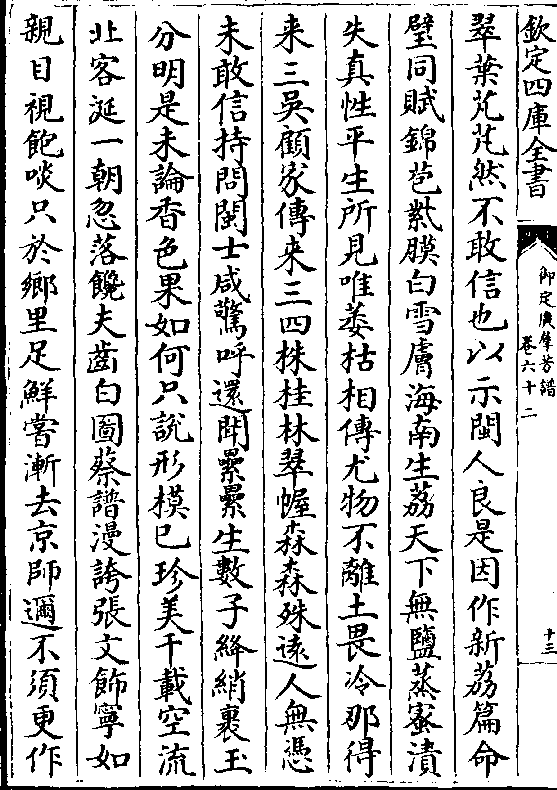 欽定四庫全書
御定廣羣芳譜
卷六十二
十三
翠葉芃芃然不敢信也以示閩人良是因作新荔篇命
璧同賦錦苞紫膜白雪膚海南生荔天下無鹽蒸蜜漬
失真性平生所見唯萎枯相傳尤物不離土畏冷那得
来三吳顧家傳来三四株桂林翠幄森森殊遠人無憑
未敢信持問閩士咸驚呼還聞纍纍生數子絳綃裹玉
分明是未論香色果如何只說形模已珍美千載空流
北客涎一朝忽落饞夫齒白圖蔡譜漫誇張文飾寧如
親目視飽啖只於鄉里足鮮嘗漸去京師邇不須更作